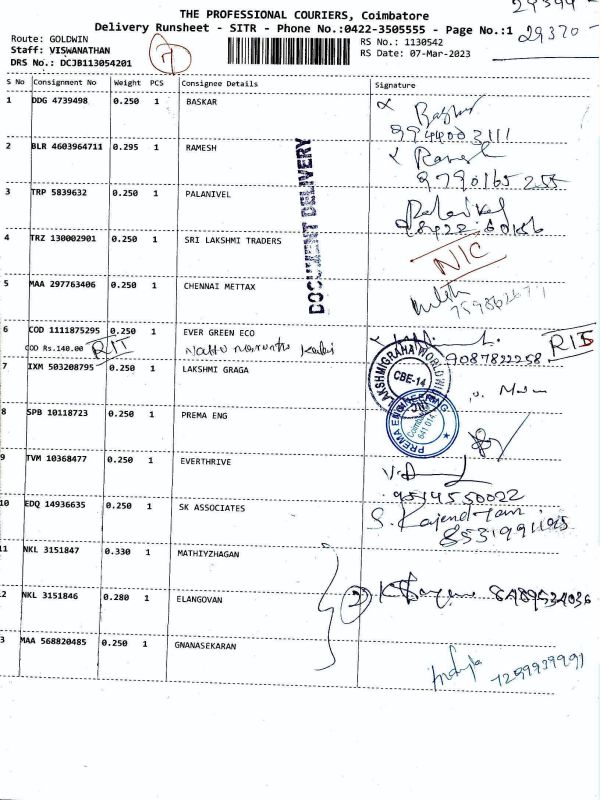 THE PROFESSIONAL COURIERS, Coimbatore
Delivery Runsheet - SITR - Phone No.:0422-3505555 - Page No.:1
29370 -
Route: GOLDWIN
Staff: VISWANATHAN
DRS No.: DCJB113054201
7
RS No.: 1130542
RS Date: 07-Mar-2023
S No Consignment No Weight PCS Consignee Details Signature
1 DDG 4739498 0.250 1 BASKAR
9944003111
2 BLR 4603964711 0.295 1 RAMESH Ramesh
9790165255
3 TRP 5839632 0.250 1 PALANIVEL Palanivel
4 TRZ 130002901 0.250 1 SRI LAKSHMI TRADERS NIC
DOCUMENT DELIVERY
5 MAA 297763406 0.250 1 CHENNAI METTAX
6 COD 1111875295 0.250 1 EVER GREEN ECO
COD Rs.140.00 RIT
9087822258 RIS
7 IXM 503208795 0.250 1 LAKSHMI GRAGA
LAKSHMIGRAHA WORLDWIDE
CBE-14
8 SPB 10118723 0.250 1 PREMA ENG
PREMA ENGINEERING
Coimbatore
641 014
9 TVM 10368477 0.250 1 EVERTHRIVE
9514550022
10 EDQ 14936635 0.250 1 SK ASSOCIATES S. Rajendran
8531991195
11 NKL 3151847 0.330 1 MATHIYZHAGAN
2 NKL 3151846 0.280 1 ELANGOVAN 2 8489534036
3 MAA 568820485 0.250 1 GNANASEKARAN
7299939991